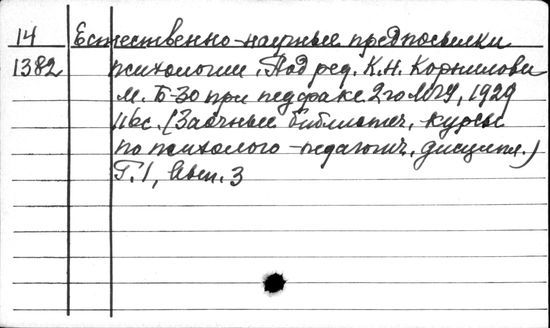 14 Естественно-научные предпосылки
1382 психологии. Под ред. К.Н. Корнилова
М. Б-зо при педфаке 2го МГУ, 1929
116с. (Заочные библиотеч. курсы
по психолого-педагогич. дисципл.)
Г. 1, Вып. 3